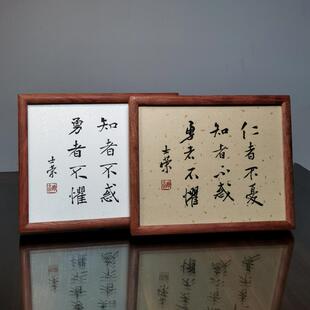 知者不惑
勇者不懼
士榮
仁者不憂
知者不惑
勇者不懼
士榮